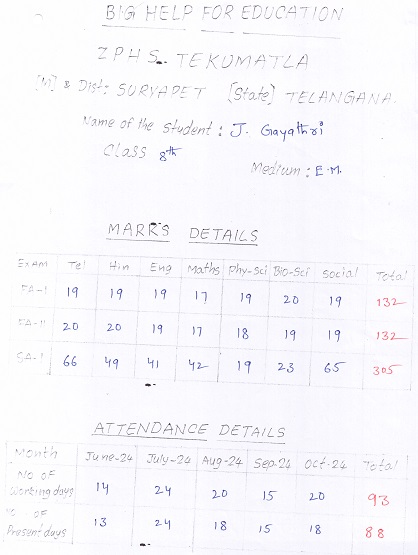 BIG HELP FOR EDUCATION
ZPHS. TEKUMATLA
[M] & Dist: SURYAPET [State] TELANGANA.
Name of the Student : J. Gayathri
Class 8th
Medium : E.M.
MARKS DETAILS
Exam Tel Hin Eng Maths Phy-Sci Bio-Sci Social Total
FA-I 19 19 19 17 19 20 19 132
FA-II 20 20 19 17 18 19 19 132
SA-I 66 49 41 42 19 23 65 305
ATTENDANCE DETAILS
Month June-24 July-24 Aug-24 Sep-24 Oct-24 Total
No of Working days 14 24 20 15 20 93
No of Present days 13 24 18 15 18 88